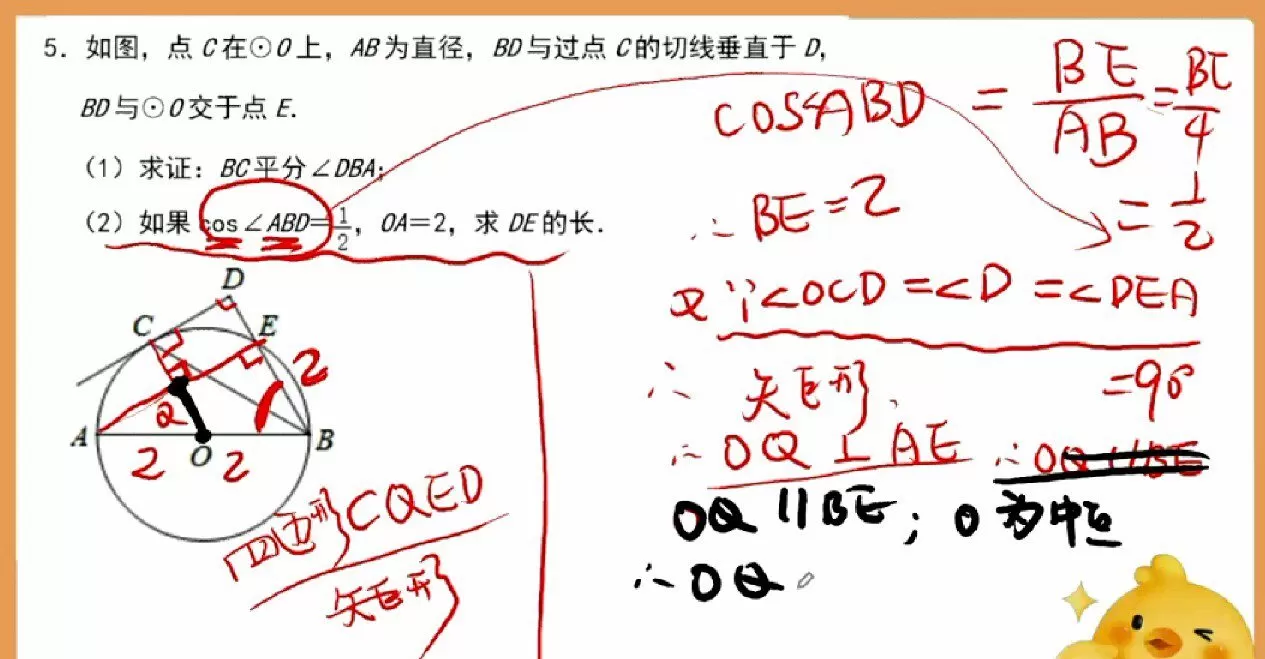 5. 如图，点 C 在⊙O 上，AB 为直径，BD 与过点 C 的切线垂直于 D，
BD 与⊙O 交于点 E.
（1）求证：BC 平分∠DBA；
（2）如果 cos∠ABD=1/2，OA=2，求 DE 的长.
D
C
E
2
Q
A
B
2
O
2
四边形CQED
矩形
COS∠ABD = BE/AB = BE/4
= 1/2
∴ BE = 2
又∵∠OCD = ∠D = ∠DEA
= 90°
∴ 矩形,
∴ OQ ⊥ AE ∴ OQ // BE
OQ // BE ; O 为中点
∴ OQ